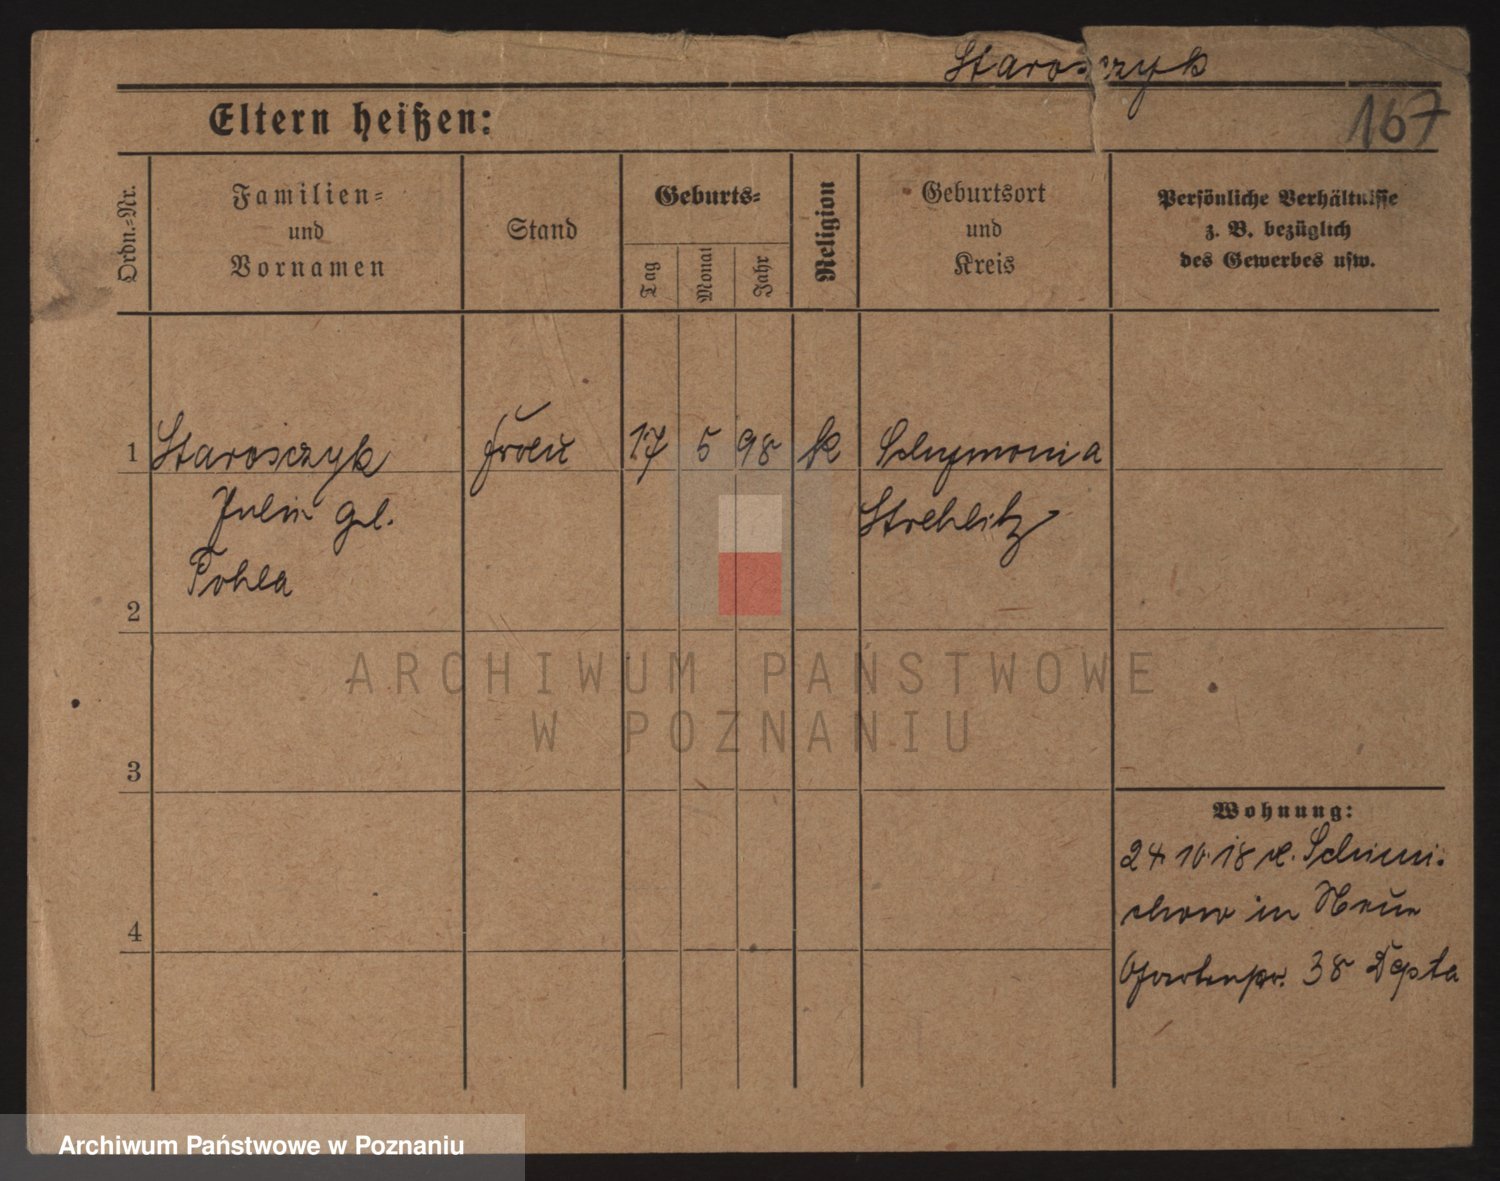 Starosczyk
167
Eltern heißen:
Ordn.-Nr.
Familien-
und
Vornamen
Stand
Geburts-
Tag
Monat
Jahr
Religion
Geburtsort
und
Kreis
Persönliche Verhältnisse
z. B. bezüglich
des Gewerbes usw.
1 Starosczyk Frau 17 5 98 k Schymonia
Julie geb. Strehlitz
Pohla
2
ARCHIWUM PAŃSTWOWE
W POZNANIU
3
Wohnung:
24 10 18 v. Schimi-
4
chow in Neue
Gartenstr. 38 Depta
Archiwum Państwowe w Poznaniu